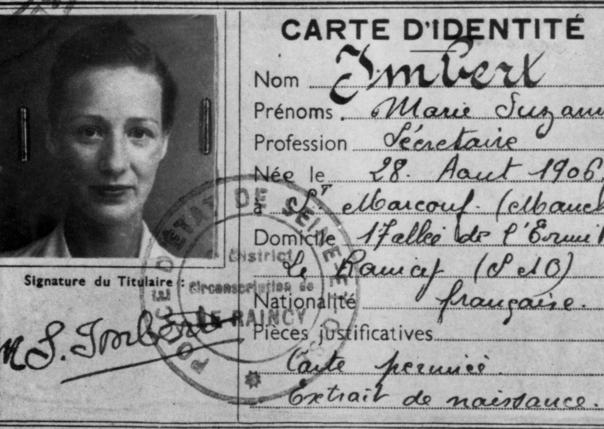 CARTE D'IDENTITÉ
Nom Imbert
Prénoms Marie Suzann
Profession Sécretaire
Née le 28. Aout 1906.
à St Marcouf. (Manch
Domicile 17 allée de l'Ermit
Le Raincy (S & O)
Nationalité française.
Pièces justificatives
Carte
Extrait de naissance.
Signature du Titulaire :
M S. Imbert
POLICE D'ETAT DE SEINE ET O
District
Circonscription de
LE RAINCY